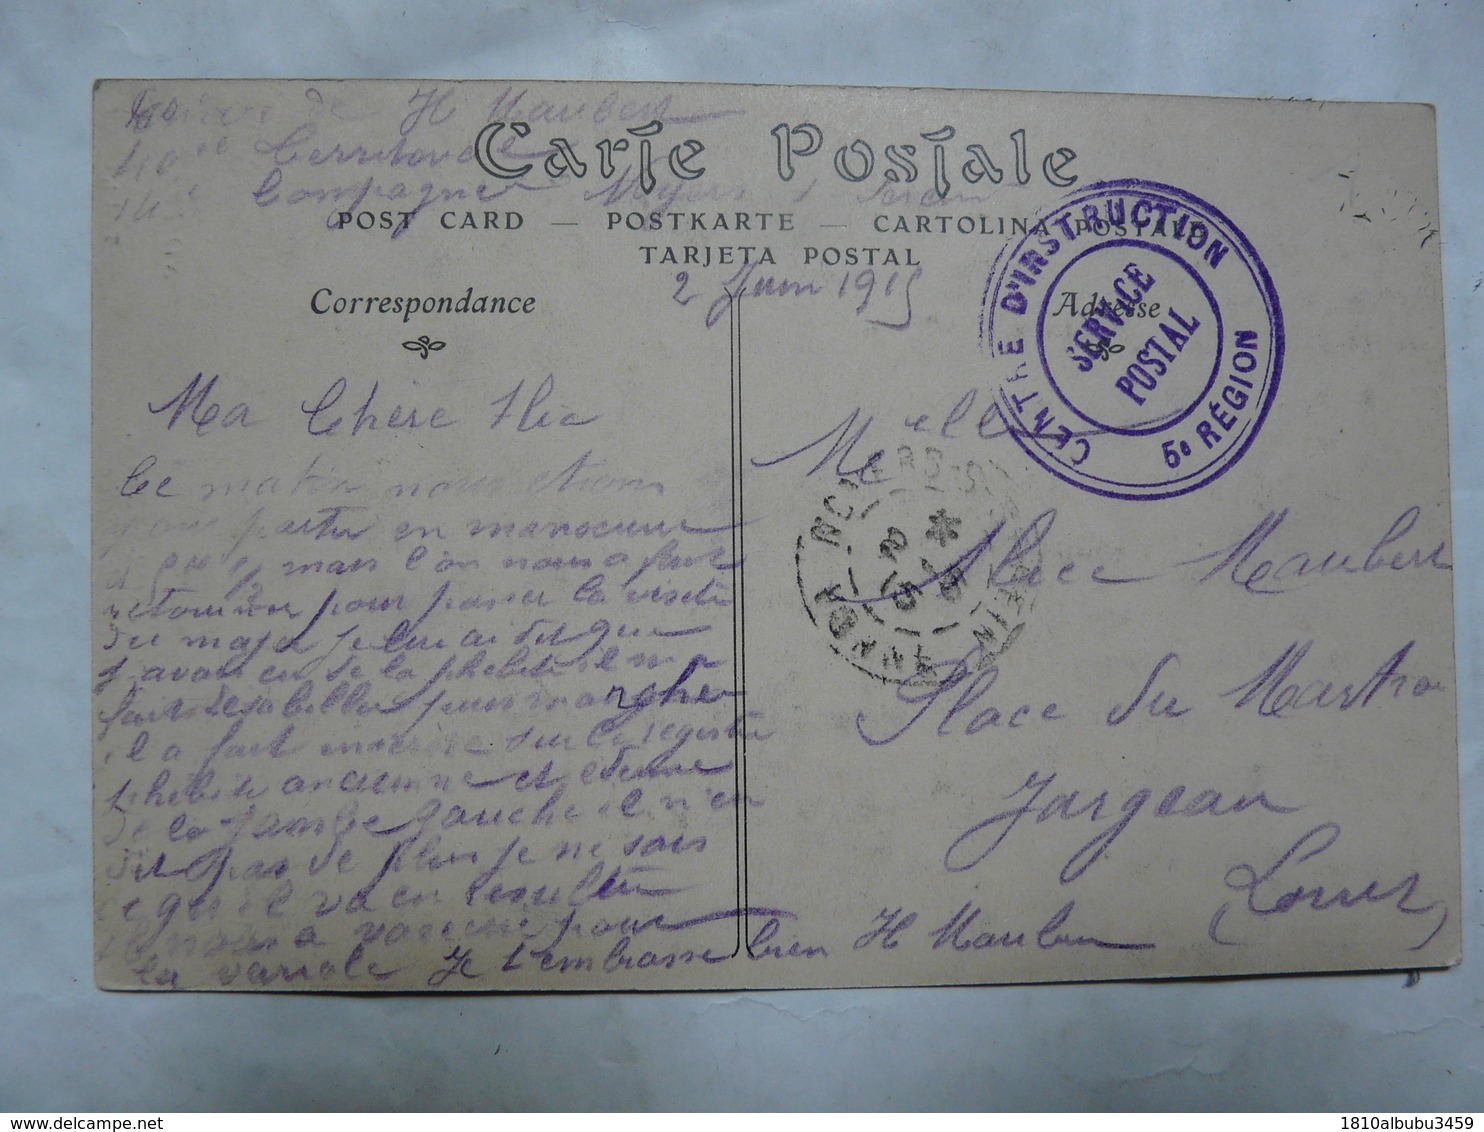 de H Maubert
40me Territoriale
14e Compagnie
Carte Postale
POST CARD — POSTKARTE — CARTOLINA POSTALE
TARJETA POSTAL
2 Juin 1915
Correspondance
Adresse
CENTRE D'INSTRUCTION
5e RÉGION
SERVICE
POSTAL
Ma Chere Alice
Ce matin nous étions
partir en manoeuvre
mais l'on nous a fait
pour passer la visite
du major je lui ai dit que
j'avais eu de la phebite il m'a
fait desabiller
il a fait inscrire sur le registre
phebite ancienne et
de la jambe gauche il n'en
dit pas de plus je ne sais
ce qu'il va en
il nous a pour
la variole Je t'embrasse bien H Maubert
Melle
Alice Maubert
Place du Martroi
Jargeau
(Loiret)
1810albubu3459